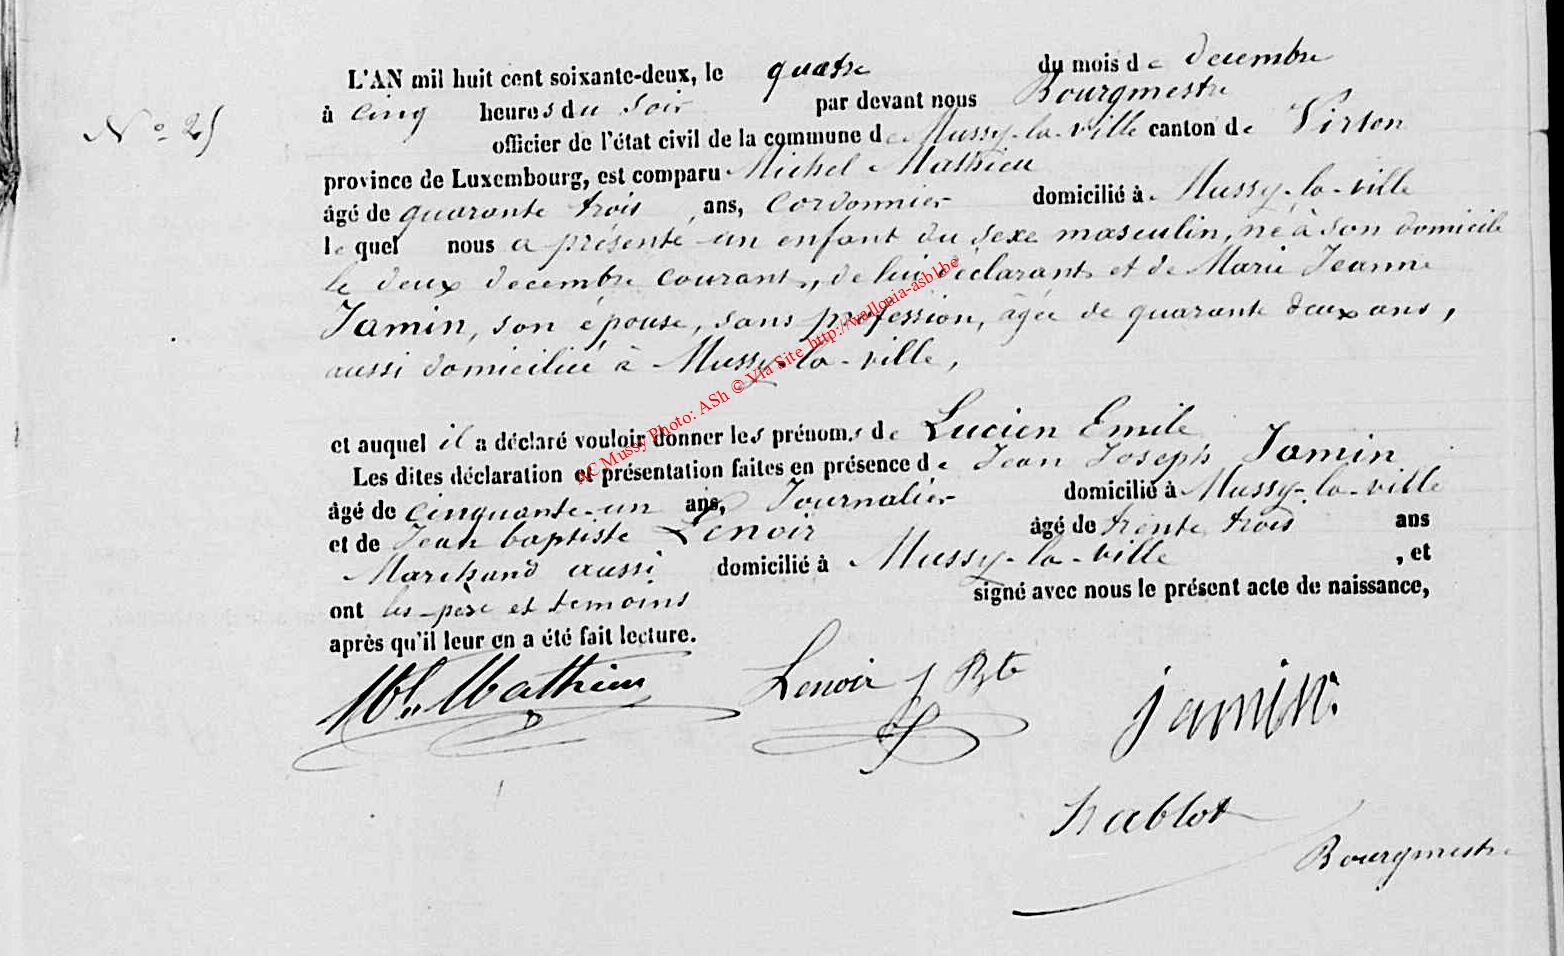 L'AN mil huit cent soixante-deux, le quatre du mois de decembre
à cinq heures du soir par devant nous Bourgmestre
N° 25
officier de l'état civil de la commune de Mussy-la-ville canton de Virton
province de Luxembourg, est comparu Michel Mathieu
âgé de quarante trois ans, Cordonnier domicilié à Mussy-la-ville
lequel nous a présenté un enfant du sexe masculin, né à son domicile
le deux decembre courant, de lui déclarant et de Marie Jeanne
Jamin, son épouse, sans profession, âgée de quarante deux ans,
aussi domiciliée à Mussy-la-ville,
et auquel il a déclaré vouloir donner les prénoms de Lucien Emile
Les dites déclaration et présentation faites en présence de Jean Joseph Jamin
âgé de cinquante-un ans, Journalier domicilié à Mussy-la-ville
et de Jean baptiste Lenoir âgé de trente trois ans
Marchand aussi domicilié à Mussy-la-ville, et
ont les père et temoins signé avec nous le présent acte de naissance,
après qu'il leur en a été fait lecture.
Ml. Mathieu Lenoir j Bte jamin.
Bourgmestre
AC Mussy Photo: ASh © Via Site http://wallonia-asbl.be